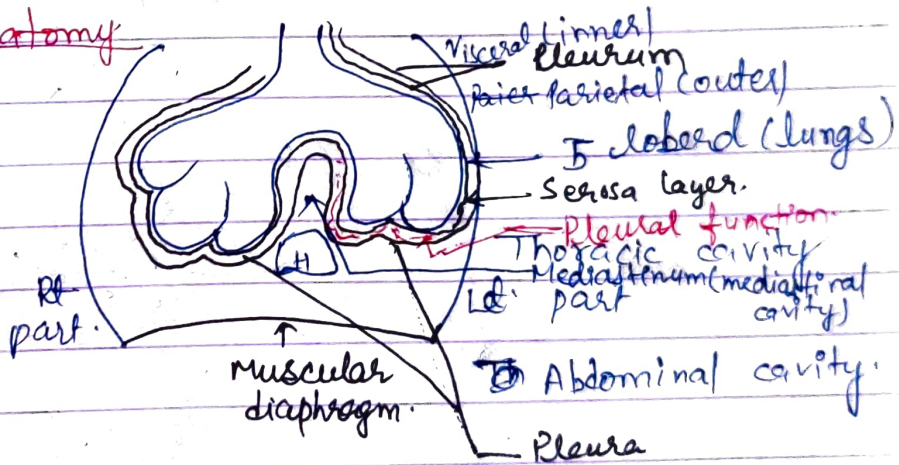 atomy.
Visceral (inner)
Pleurum
Parietal (outer)
5 loberd (lungs)
Serosa layer.
Pleural function.
Thoracic cavity
Mediastinum (mediastinal
cavity)
H
Rt
part.
Ld. part
Muscular
diaphragm.
Abdominal cavity.
Pleura